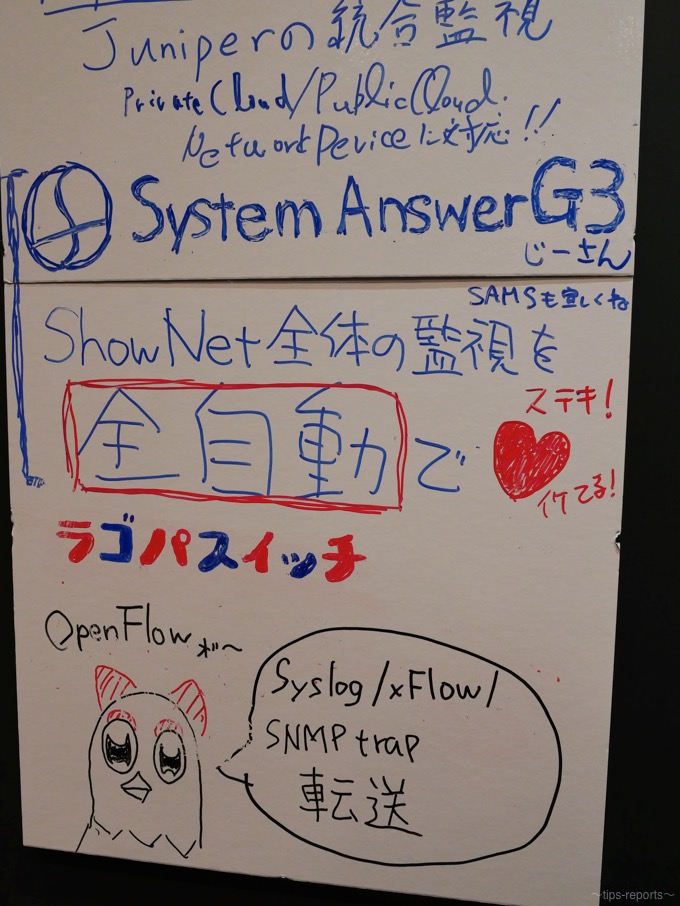 Juniperの統合監視
Private Cloud/Public Cloud.
Network Deviceに対応!!
System Answer G3
じーさん
SAMSも宜しくね
ShowNet全体の監視を
全自動で
ステキ!
イケてる!
ラゴパスイッチ
OpenFlow
Syslog/xFlow/
SNMP trap
転送
～tips-reports～